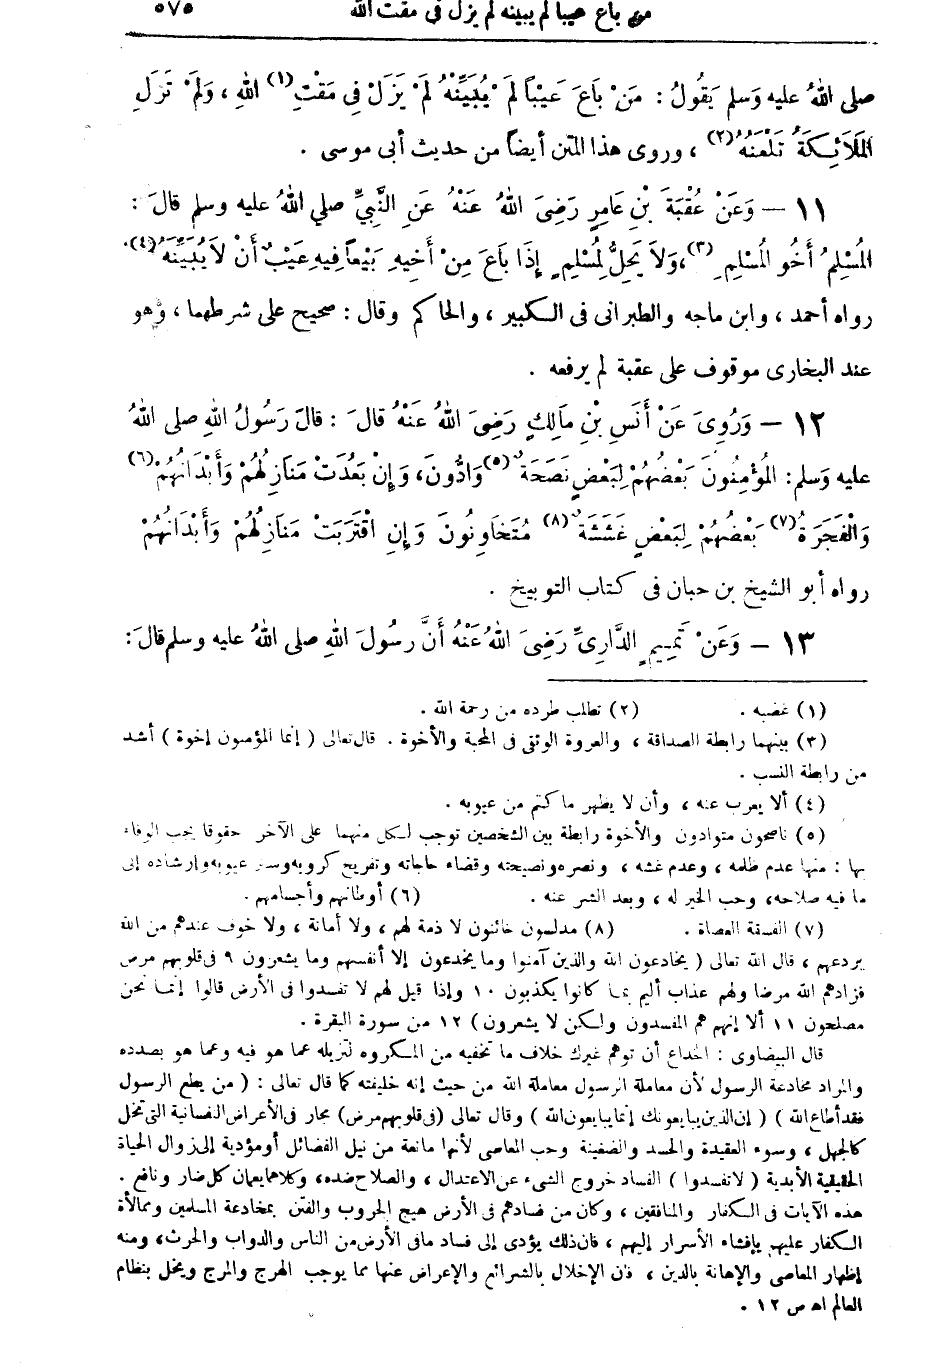 من باع عيبا لم يبينه لم يزل فى مقت الله ٥٧٥
صلى اللهُ عليه وَسلم يَقُولُ : مَنْ بَاعَ عَيْبًا لَمْ يُبَيِّنْهُ لَمْ يَزَلْ فِى مَقْتِ (١) اللهِ ، وَلَمْ تَزَلِ
المَلَائِكَةُ تَلْعَنُهُ (٢) ، وروى هذا المتن أيضاً من حديث أبى موسى .
١١ — وَعَنْ عُقْبَةَ بْنِ عَامِرٍ رَضِىَ اللهُ عَنْهُ عَنِ النَّبِىِّ صلى اللهُ عليه وسلم قالَ :
المُسْلِمُ أَخُو المُسْلِمِ (٣) ، وَلاَ يَحِلُّ لِمُسْلِمٍ إِذَا بَاعَ مِنْ أَخِيهِ بَيْعًا فِيهِ عَيْبٌ أَنْ لاَ يُبَيِّنَهُ (٤) .
رواه أحمد ، وابن ماجه والطبرانى فى الكبير ، والحاكم وقال : صحيح على شرطهما ، وهو
عند البخارى موقوف على عقبة لم يرفعه .
١٢ — وَرُوِىَ عَنْ أَنَسِ بْنِ مَالِكٍ رَضِىَ اللهُ عَنْهُ قالَ : قالَ رَسُولُ اللهِ صلى اللهُ
عليه وَسلم : المُؤْمِنُونَ بَعْضُهُمْ لِبَعْضٍ نَصَحَةٌ (٥) وَادُّونَ ، وَإِنْ بَعُدَتْ مَنَازِلُهُمْ وَأَبْدَانُهُمْ (٦)
وَالْفَجَرَةُ (٧) بَعْضُهُمْ لِبَعْضٍ غَشَشَةٌ (٨) مُتَخَاوِنُونَ وَإِنِ اقْتَرَبَتْ مَنَازِلُهُمْ وَأَبْدَانُهُمْ
رواه أبو الشيخ بن حبان فى كتاب التوبيخ .
١٣ — وَعَنْ تَمِيمٍ الدَّارِىِّ رَضِىَ اللهُ عَنْهُ أَنَّ رسُولَ اللهِ صلى اللهُ عليه وسلم قالَ :
(١) غضبه . (٢) تطلب طرده من رحمة الله .
(٣) بينهما رابطة الصداقة ، والعروة الوثقى فى المحبة والأخوة . قال تعالى ( إنما المؤمنون إخوة ) أشد
من رابطة النسب .
(٤) ألا يعرب عنه ، وأن لا يظهر ما كتم من عيوبه .
(٥) ناصحون متوادون والأخوة رابطة بين الشخصين توجب لكل منهما على الآخر حقوقا يجب الوفاء
بها : منها عدم ظلمه ، وعدم غشه ، ونصره ونصيحته وقضاء حاجاته وتفريج كروبه وستر عيوبه وإرشاده إلى
ما فيه صلاحه ، وحب الخير له ، وبعد الشر عنه . (٦) أوطانهم وأجسامهم .
(٧) الفسقة العصاة . (٨) مدلسون خائنون لا ذمة لهم ، ولا أمانة ، ولا خوف عندهم من الله
يردعهم ، قال الله تعالى ( يخادعون الله والذين آمنوا وما يخدعون إلا أنفسهم وما يشعرون ٩ فى قلوبهم مرض
فزادهم الله مرضا ولهم عذاب أليم بما كانوا يكذبون ١٠ وإذا قيل لهم لا تفسدوا فى الأرض قالوا إنما نحن
مصلحون ١١ ألا إنهم هم المفسدون ولكن لا يشعرون ) ١٢ من سورة البقرة .
قال البيضاوى : الخداع أن توهم غيرك خلاف ما تخفيه من المكروه لتزيله عما هو فيه وعما هو بصدده
والمراد مخادعة الرسول لأن معاملة الرسول معاملة الله من حيث إنه خليفته كما قال تعالى : ( من يطع الرسول
فقد أطاع الله ) ( إن الذين يبايعونك إنما يبايعون الله ) وقال تعالى (فى قلوبهم مرض) مجاز فى الأعراض النفسانية التى تخل
كالجهل ، وسوء العقيدة والحسد والضغينة وحب المعاصى لأنها مانعة من نيل الفضائل أو مؤدية إلى زوال الحياة
الحقيقية الأبدية ( لا تفسدوا ) الفساد خروج الشىء عن الاعتدال ، والصلاح ضده ، وكلاهما يعمان كل ضار ونافع .
هذه الآيات فى الكفار والمنافقين ، وكان من فسادهم فى الأرض هيج الحروب والفتن بمخادعة المسلمين وممالأة
الكفار عليهم بإفشاء الأسرار إليهم ، فان ذلك يؤدى إلى فساد ما فى الأرض من الناس والدواب والحرث ، ومنه
إظهار المعاصى والإهانة بالدين ، فان الإخلال بالشرائع والإعراض عنها مما يوجب الهرج والمرج ويخل بنظام
العالم اه ص ١٢ .